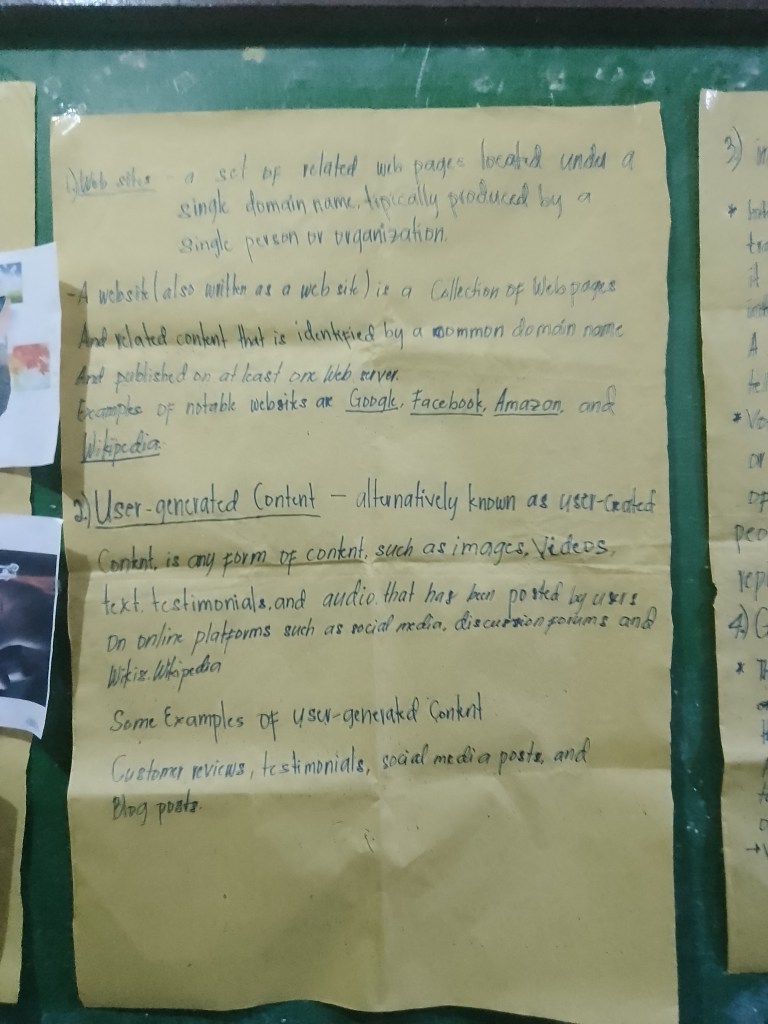 1) Web sites - a set of related web pages located under a
single domain name, typically produced by a
single person or organization.
- A website (also written as a web site) is a Collection of Web pages
And related content that is identified by a common domain name
And published on at least one Web server.
Examples of notable websites are Google, Facebook, Amazon, and
Wikipedia.
2) User-generated Content - alternatively known as user-created
Content, is any form of content, such as images, Videos,
text, testimonials, and audio, that has been posted by users
On online platforms such as social media, discussion forums and
Wikis. Wikipedia
Some Examples Of user-generated Content
Customer reviews, testimonials, social media posts, and
Blog posts.
3)
*
it
A
*
or
of
4)
*